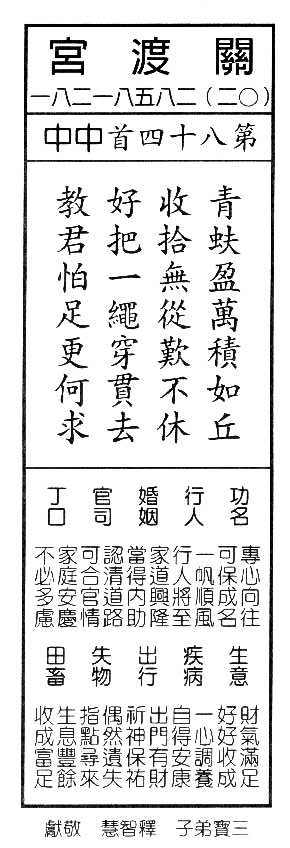 關渡宮
(〇二)二八五八一二八一
第八十四首 中中
青蚨盈萬積如丘
收拾無從歎不休
好把一繩穿貫去
教君怕足更何求
功名
專心向往
可保成名
行人
一帆順風
行人將至
婚姻
家道興隆
當得內助
官司
認清道路
可合官情
丁口
家庭安慶
不必多慮
生意
財氣滿足
好好收成
疾病
一心調養
自得安康
出行
出門有財
祈神保祐
失物
偶然遺失
指點尋來
田畜
生息豐餘
收成富足
三寶弟子 釋智慧 敬獻